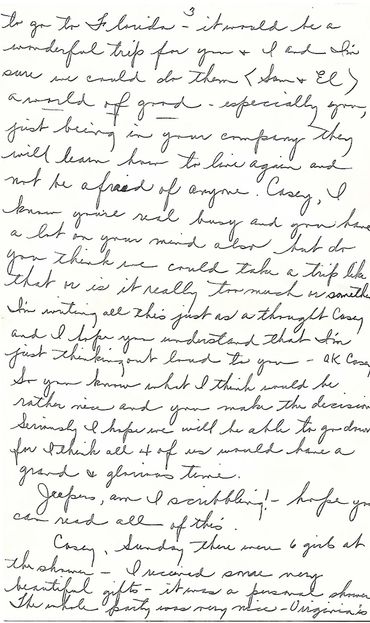 3
to go to Florida - it would be a
wonderful trip for you & I and I'm
sure we could do them (Sam & El)
a world of good - especially you,
just being in your company they
will learn how to live again and
not be afraid of anyone. Casey, I
know you're real busy and you have
a lot on your mind also but do
you think we could take a trip like
that or is it really too much or somethin
I'm writing all this just as a thought Casey
and I hope you understand that I'm
just thinking out loud to you - OK Casey
So you know what I think would be
rather nice and you make the decision
Seriously I hope we will be able to go down
for I think all 4 of us would have a
grand & glorious time.
Jeepers, am I scribbling! - hope you
can read all of this.
Casey, Sunday there were 6 girls at
the shower - I received some very
beautiful gifts - it was a personal shower
The whole party was very nice - Virginia's